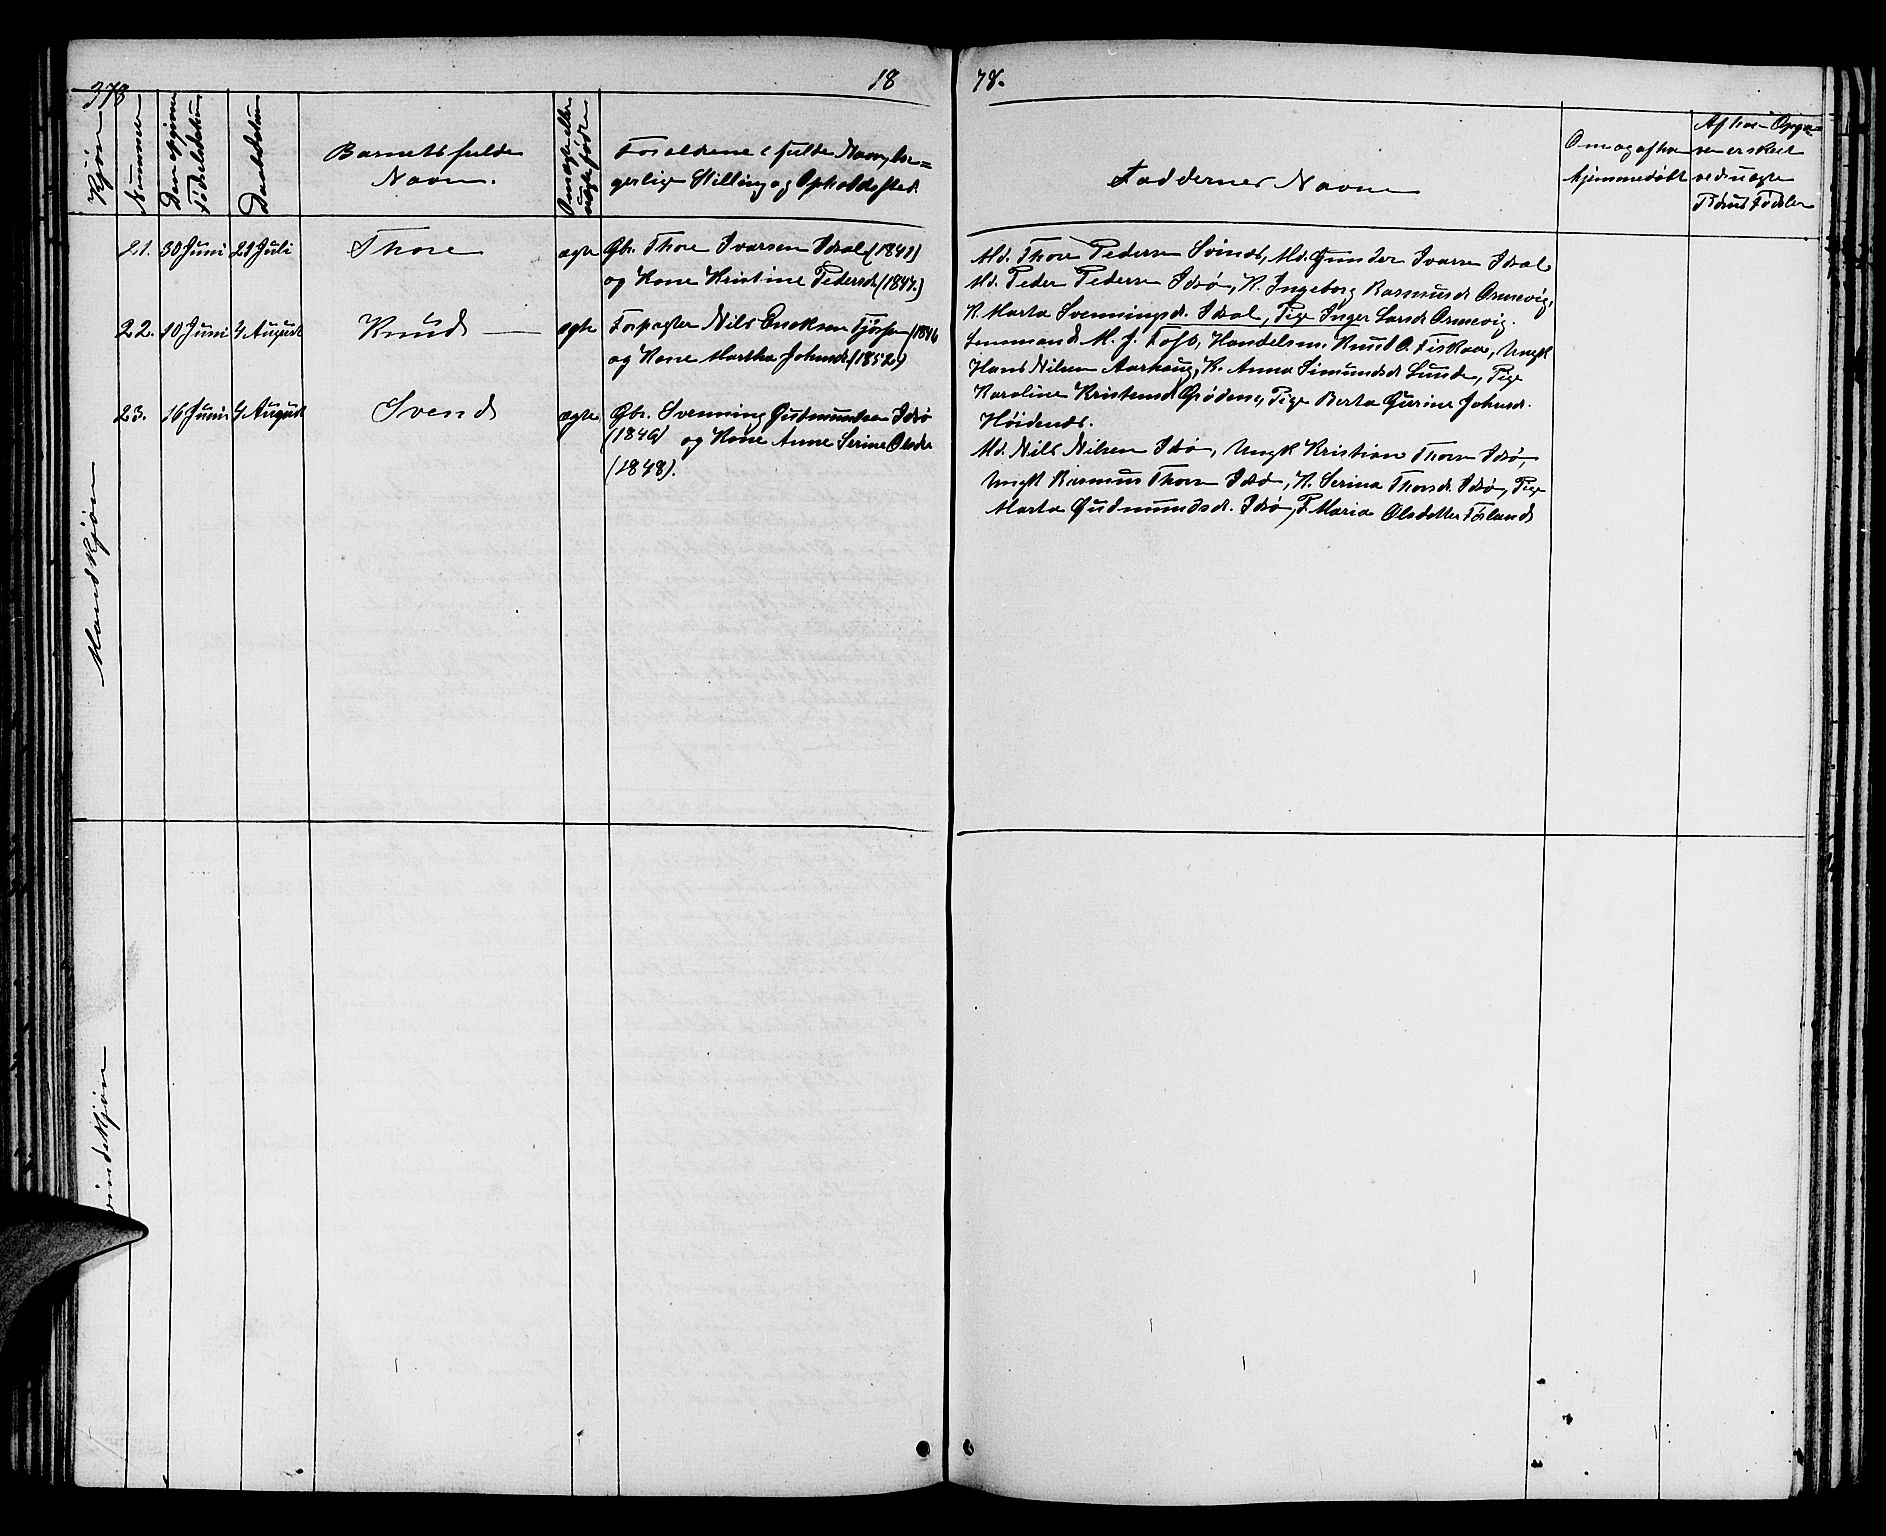 378
18
78.
Kjøn
Nummer
Den opgivne
Fødselsdatum
Daabsdatum
Barnets fulde
Navn.
Om ægte eller
uægte fødte
Forældrene s fulde Navn, bor=
gerlige Stilling og Opholdssted.
Faddernes Navne
Om og af hv
hjemmedøbt
Af hvem Opga=
ven er skeet
ved uægte
Fødsler
Mandkjøn
21. 30 Juni 21 Juli Thore ægte Gbr. Thore Ivarsen Idsal (1841)
og Kone Kristine Pedersd. (1847.)
Md. Thore Pedersen Svines, Md. Gunder Ivarsen Idsal
Md. Peder Pedersen Idsø, K. Ingeborg Rasmusd. Ormevig,
K. Marta Svenningsd. Idsal, Pige Inger Larsd. Ormevig.
22. 10 Juni 4 August Knud ægte Forpagter Nils Enoksen (1846
og Kone Martha Johnsd. (1852)
Lensmand M. J. Toft, Handelsm. Knud O. Fiskaa, Ungk
Hans Nilsen Aarhaug, K. Anna Simundsd. Lunde, Pige
Karoline Kristensd. Grødem, Pige Berta Gurine Johnsd.
23. 16 Juni 4 August Svend ægte Gbr. Svenning Gudmundsen Idsø
(1846) og Kone Anne Serine Olsdr
(1848).
Md. Nils Nilsen Idsø, Ungk Kristian Thorsen Idsø,
Ungk Rasmus Thorsen Idsø, K. Serina Thorsd. Idsø, Pige
Marta Gudmundsd. Idsø, P. Maria Olsdatter
vindekjøn